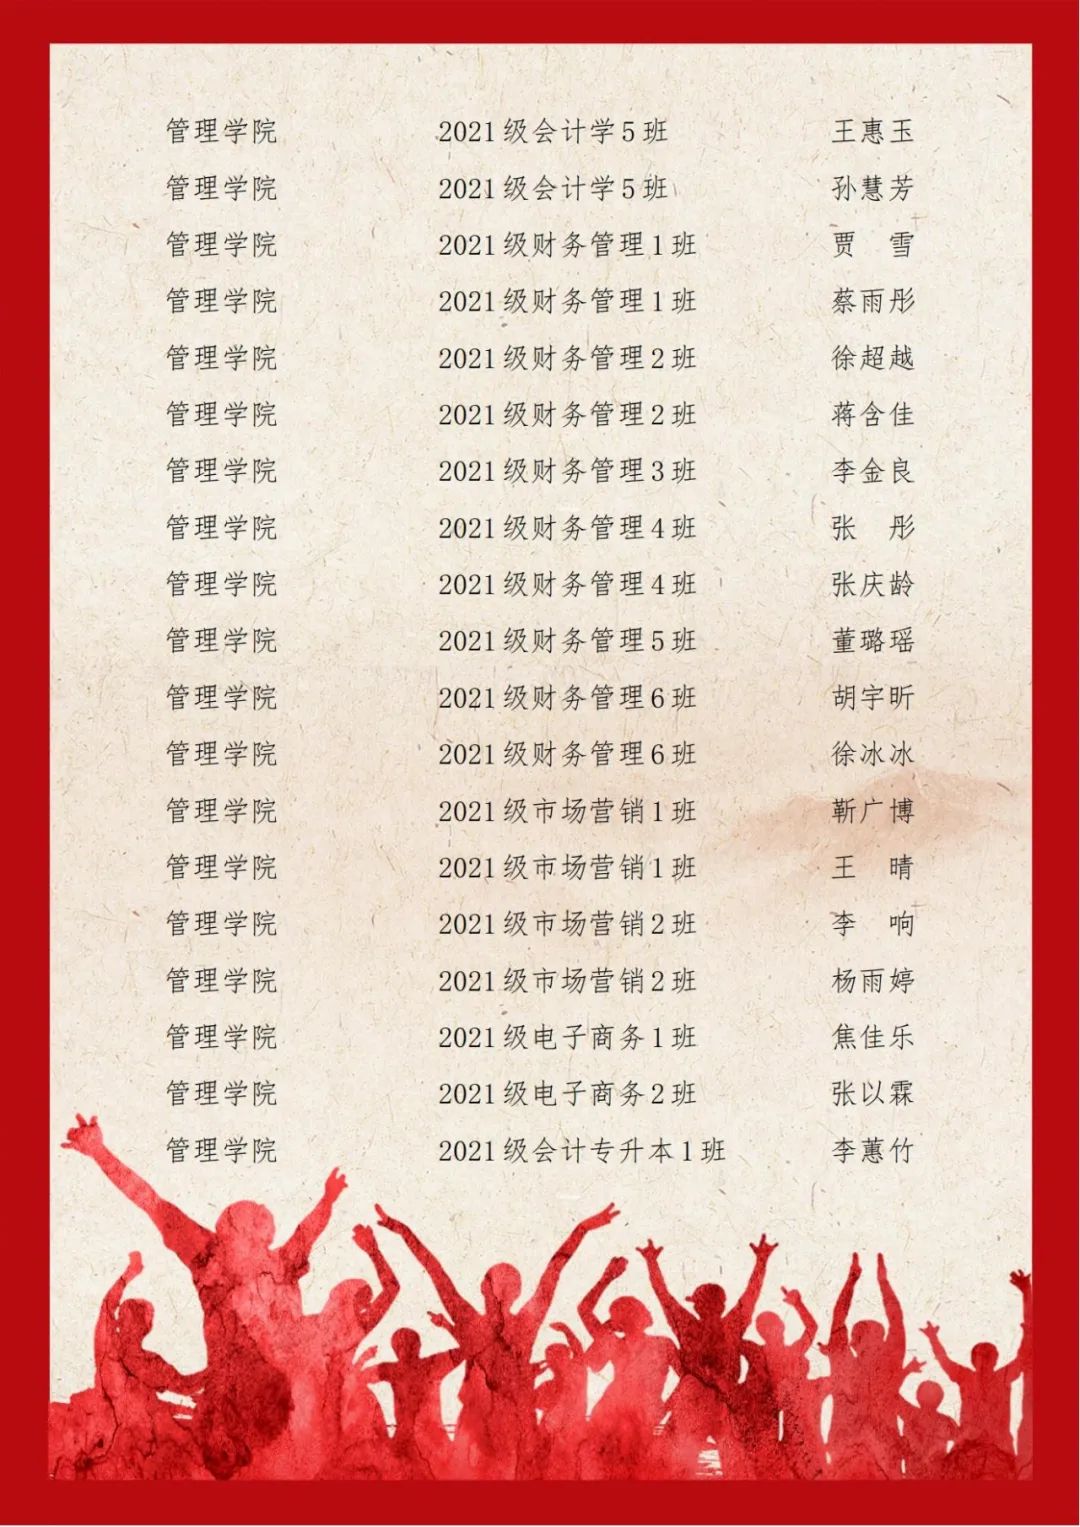 管理学院 2021级会计学5班 王惠玉
管理学院 2021级会计学5班 孙慧芳
管理学院 2021级财务管理1班 贾　雪
管理学院 2021级财务管理1班 蔡雨彤
管理学院 2021级财务管理2班 徐超越
管理学院 2021级财务管理2班 蒋含佳
管理学院 2021级财务管理3班 李金良
管理学院 2021级财务管理4班 张　彤
管理学院 2021级财务管理4班 张庆龄
管理学院 2021级财务管理5班 董璐瑶
管理学院 2021级财务管理6班 胡宇昕
管理学院 2021级财务管理6班 徐冰冰
管理学院 2021级市场营销1班 靳广博
管理学院 2021级市场营销1班 王　晴
管理学院 2021级市场营销2班 李　响
管理学院 2021级市场营销2班 杨雨婷
管理学院 2021级电子商务1班 焦佳乐
管理学院 2021级电子商务2班 张以霖
管理学院 2021级会计专升本1班 李蕙竹